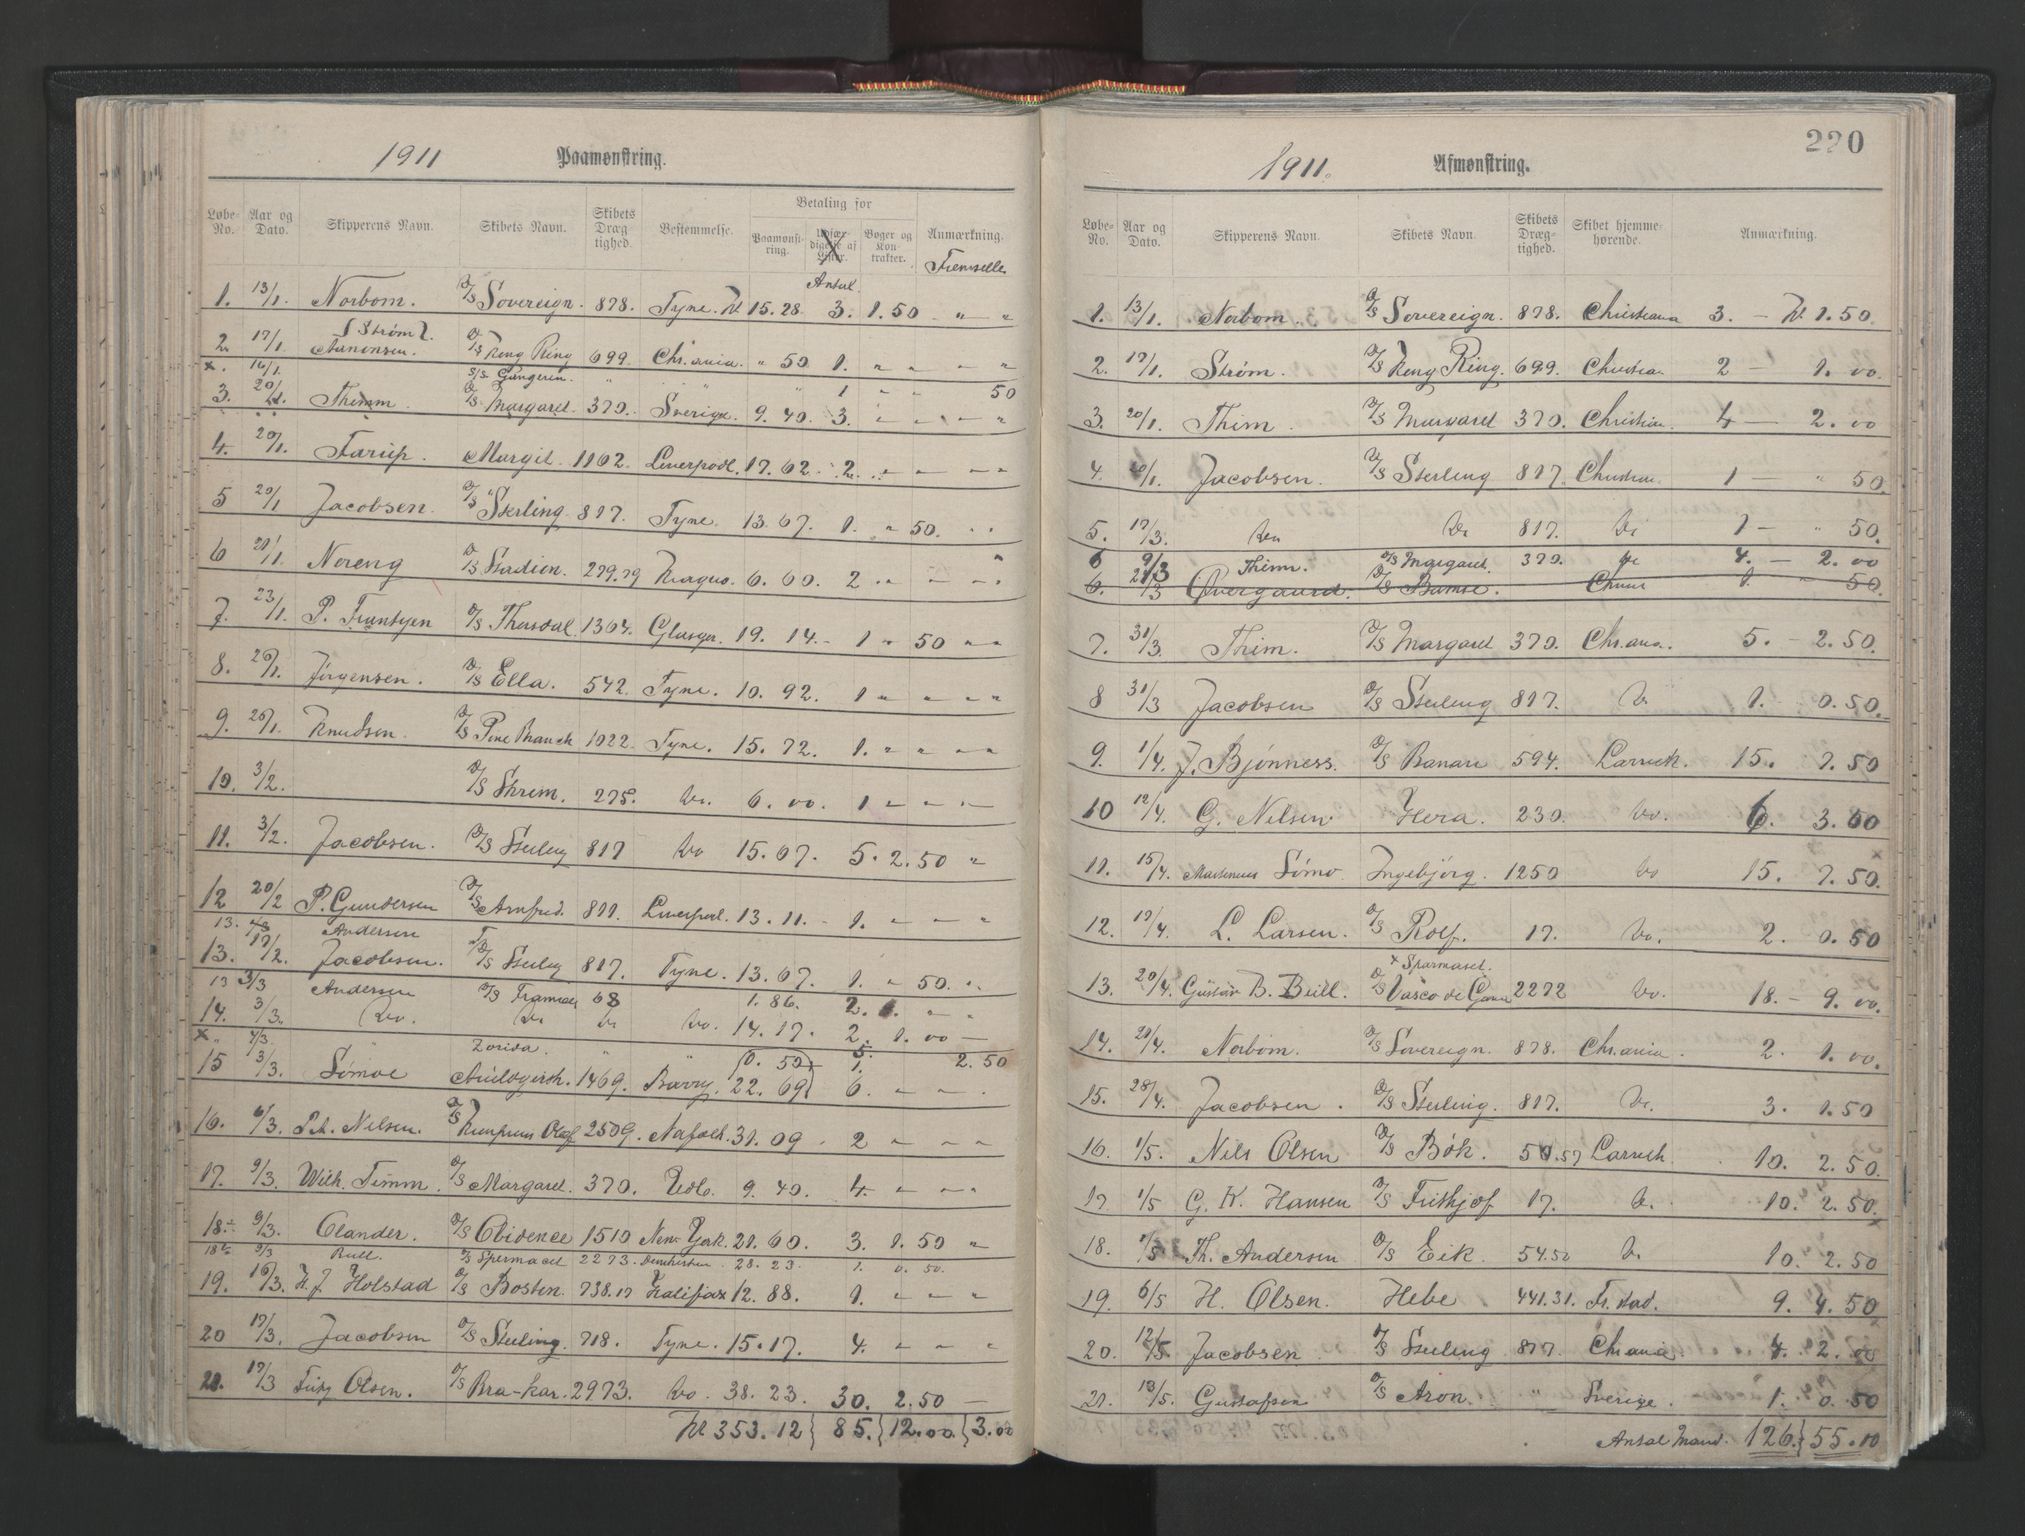 1911 Paamønstring.
Løbe-No. Aar og Dato. Skipperens Navn. Skibets Navn. Skibets Drægtighed. Bestemmelse. Betaling for Anmærkning.
Paamønstring. Udfærdigelse af Lister. Bøger og Kontrakter.
Antal.
1. 13/1. Norbom. D/S Sovereign. 878. Tyne. Kr 15.28. 3. 1.50 " "
{Strøm}
2. 17/1. D/S Kong Ring 699. Chr.ania. " 50 1. " " "
x. 16/1. S/S. " " " 1 " " 50
3. 20/1. Thimm. D/S Margaret. 370. Sverige. 9.40. 3. " " "
4. 20/1. Farup. Margit. 1162. Liverpool. 17.62. 2. " " "
5 20/1 Jacobsen. D/S "Sterling. 817. Tyne. 13.67. 1. " 50. "
6 21/1. Noreng D/S Stadion. 279.79 Kragerø. 6.60. 2 " " "
7. 23/1. P. Frantzen D/S Thorsdal. 1364. Glasgow. 19.14. - 1 " 50 " "
8. 26/1. Jørgensen. D/S Ella. 542. Tyne. 10.92. 1 " " " "
9. 26/1. Knudsen. D/S Pine Branch 1922. Tyne. 15.72. 1. " " " "
10. 3/2. D/S Skrim. 275. do. 6.00. 1 " " "
11. 3/2. Jacobsen. D/S Sterling 817 do 15.67. 5. 2.50 "
12 20/2 P. Gundersen D/S Arnfred. 811. Liverpol. 13.11. - 1. " " "
13. Andersen
13. 17/2. Jacobsen. D/S Sterling 817. Tyne. 13.67. 1. " 50. "
13 3/3 Andersen D/S Framnæs 68 1.86. 2. " "
14. 3/3. do. do do do. 14.17. 2. 1.00 -
x " 4/3. " Zorida. " " (0.50) 1. 2.50
15 3/3. Sømoe 1469. Barry. 22.69) 6. " " .
16. 6/3. Pet. Nilsen. D/S Kong Olaf 2509. Nafolk. 31.09. 2 " " "
17. 9/3. Wilh. Timm. D/S Margaret. 370. Udl. 9.40. 4. " " "
18. 9/3. Olander. D/S Obidence 1510 New York. 21.60. 3. 1.50 "
18½ 9/3 Bull. D/S Spermacet 2273. 28.23. 1. 0.50.
19. 16/3. H. J. Holstad D/S Boston. 738.17 Halifax 12.88. 1. " " "
20 17/3. Jacobsen D/S Sterling. 718. Tyne. 15.17. 4. " " "
21. 17/3 Fritz Olsen. D/S Bra-Kar. 2973. do. 38.23. 30. 2.50 -
Kr 353.12} 85. {12.00} 3.00
220
1911. Afmønstring.
Løbe-No. Aar og Dato. Skipperens Navn. Skibets Navn. Skibets Drægtighed. Skibet hjemmehørende. Anmærkning.
1. 13/1. Norbom. D/S Sovereign. 878. Christiania 3. - Kr 1.50.
2. 17/1. Strøm. D/S Kong Ring. 699. Christian 2 - 1.00.
3. 20/1. Thim. D/S Margaret 370. Christian. 4 - 2.00
4. 20/1. Jacobsen. D/S Sterling 817. Christian. 1 - " 50.
5. 17/3. do do 817. do 1 - " 50.
6 9/3 Thim. D/S Margaret. 370. do 4. - 2.00
6. 21/3 Overgaard. D/S Bamse. Chria 1. " 50.
7. 31/3. Thim. D/S Margaret 370. Chr.ania. 5. - 2.50.
8 31/3 Jacobsen D/S Sterling 817. do 1. - 0.50.
9. 1/4. J. Bjønness. D/S Banan 594. Larvik. 15. 7.50
10 12/4. G. Nilsen. Hera. 230. do. 6. 3.00
11. 15/4. Martenius Sømo. Ingebjørg. 1250 do 15. 7.50.
12. 17/4. L. Larsen. D/S Rolf. 17. do. 2. 0.50
x Sparmaset.
13. 20/4. Gustav B. Bull. D/S Vasco de Gama 2272 do. 18. - 9.00.
14. 21/4. Norbom. D/S Sovereign. 878. Chr.ania. 2. 1.00.
15. 28/4. Jacobsen. D/S Sterling. 817. do. 3. 1.50
16. 1/5. Nils Olsen D/S Bøk. 50.57 Larvik. 10. 2.50.
17 1/5 G. K. Hansen D/S Frithjof 17. do. 10. 2.50.
18. 1/5 Th. Andersen D/S Eik. 54.50 do 10. 2.50
19. 6/5 H. Olsen. Hebe 441.31. Fr.stad. 9. 4.50
20. 12/5. Jacobsen D/S Sterling 817. Chr.ania. 4. 2.00
21. 13/5. Gustafsen D/S Aron. " Sverige. 1. 0.50
Antal Mand. 126.} 55.10